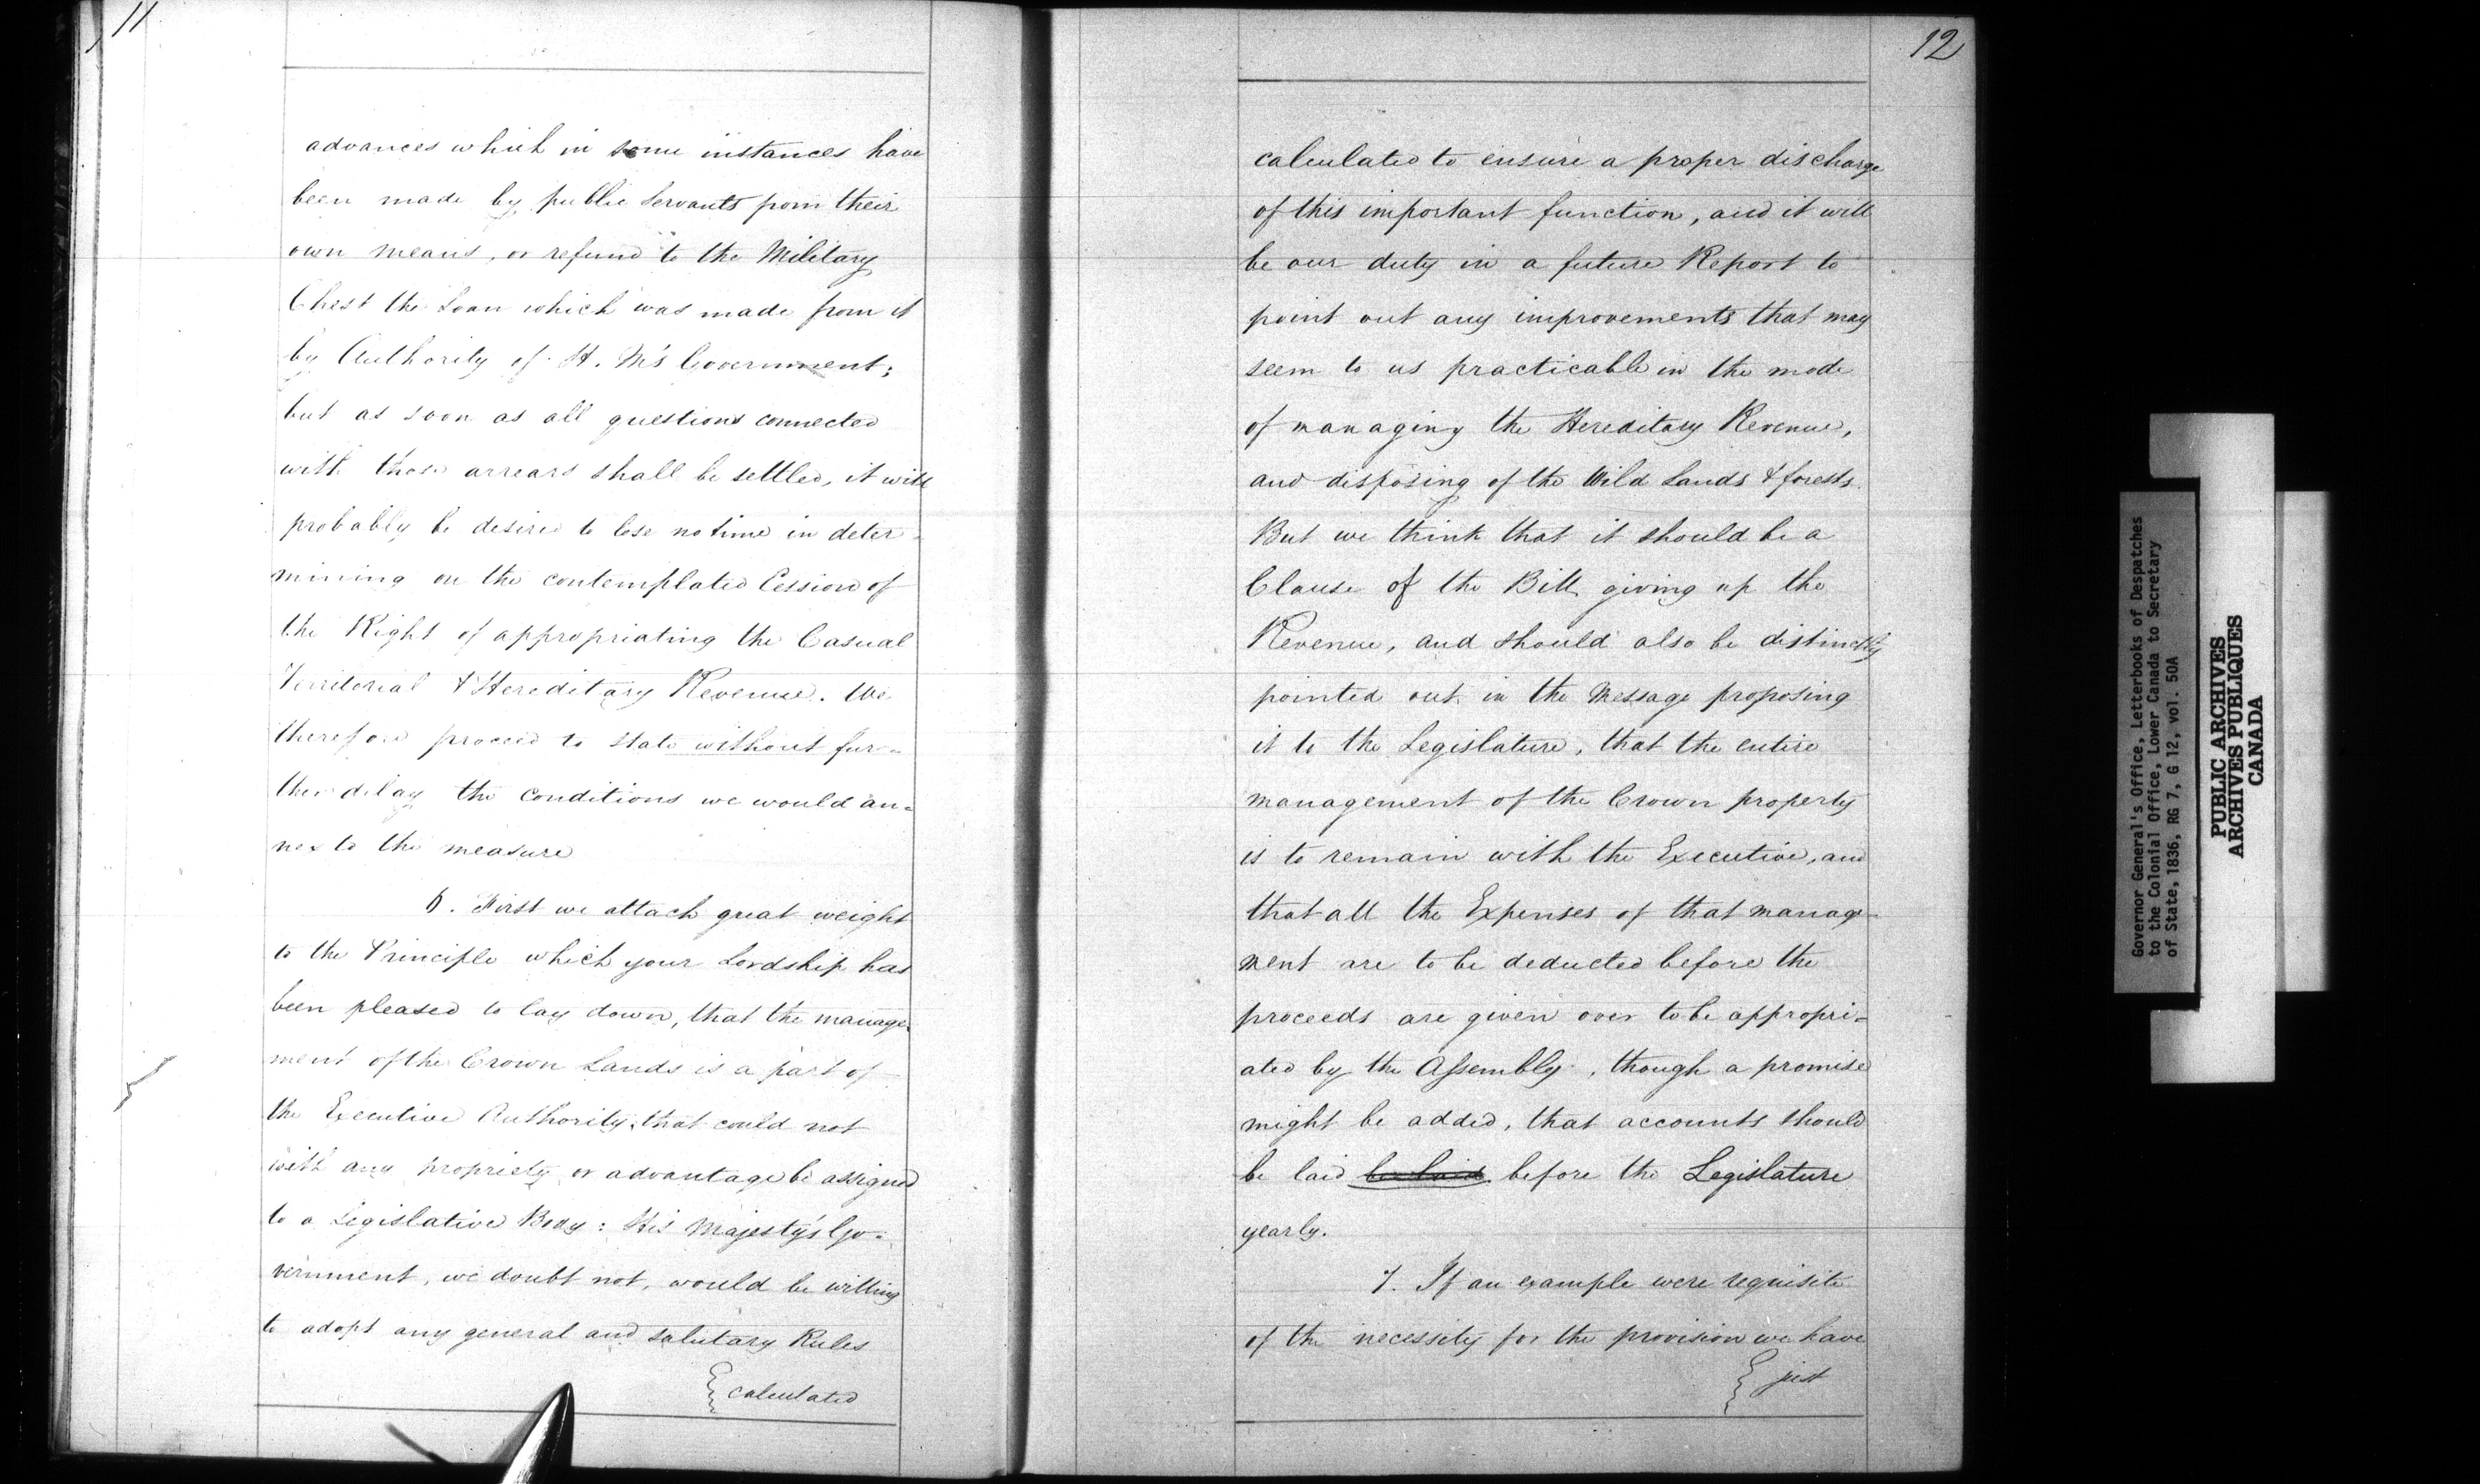 11
advances which in some instances have
been made by public Servants from their
own means, or refund to the Military
Chest the Loan which was made from it
by Authority of H. M's Government;
but as soon as all questions connected
with those arrears shall be settled, it will
probably be desired to lose no time in deter-
mining on the contemplated Cession of
the Right of appropriating the Casual
Territorial & Hereditary Revenue. We
therefore proceed to state without fur=
ther delay the conditions we would an=
nex to the measure
6. First we attach great weight
to the Principle which your Lordship has
been pleased to lay down, that the manage-
ment of the Crown Lands is a part of
the Executive Authority, that could not
with any propriety or advantage be assigned
to a Legislative Body: His Majesty's Go=
vernment, we doubt not, would be willing
to adopt any general and salutary Rules
calculated
12
calculated to ensure a proper discharge
of this important function, and it will
be our duty in a future Report to
point out any improvements that may
seem to us practicable in the mode
of managing the Hereditary Revenue,
and disposing of the Wild Lands & forests.
But we think that it should be a
Clause of the Bill giving up the
Revenue, and should also be distinctly
pointed out in the Message proposing
it to the Legislature, that the entire
management of the Crown property
is to remain with the Executive, and
that all the Expenses of that manage-
ment are to be deducted before the
proceeds are given over to be appropri=
ated by the Assembly, though a promise
might be added, that accounts should
be laid be laid before the Legislature
yearly.
7. If an example were requisite
of the necessity for the provision we have
just
Governor General's Office, Letterbooks of Despatches
to the Colonial Office, Lower Canada to Secretary
of State, 1836, RG 7, G 12, vol. 50A
PUBLIC ARCHIVES
ARCHIVES PUBLIQUES
CANADA